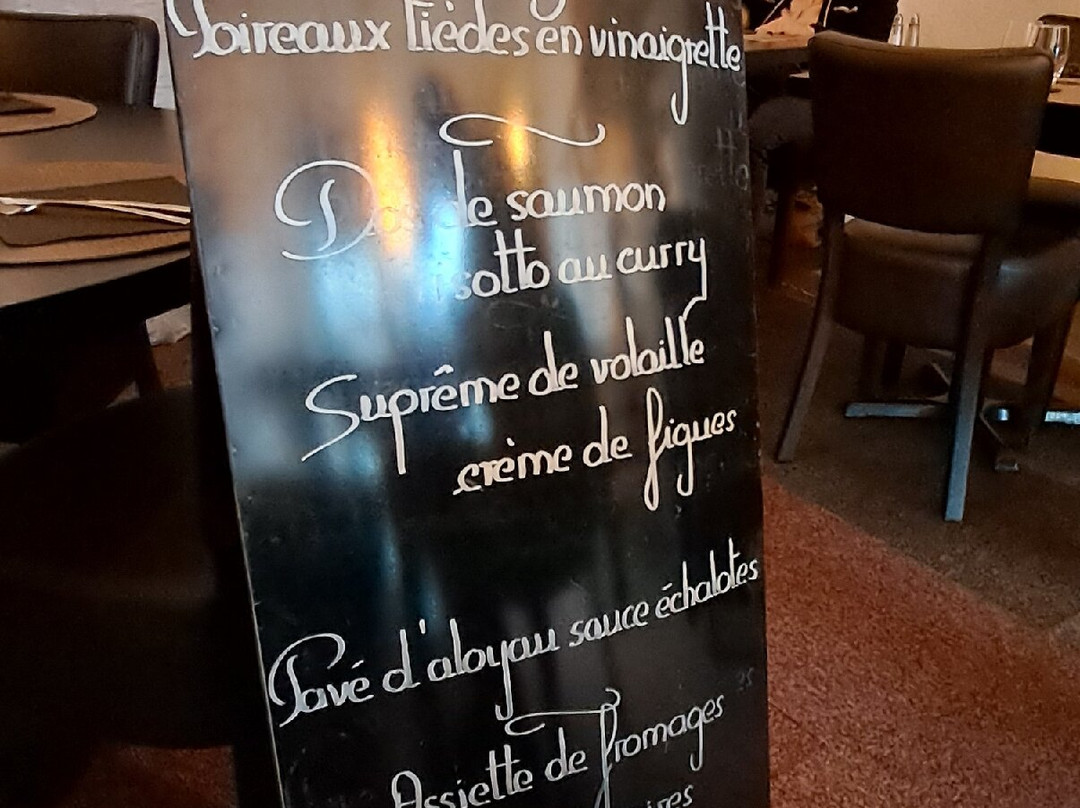 Poireaux tièdes en vinaigrette
Dos de saumon
sotto au curry
Suprême de volaille
crème de figues
Pavé d'aloyau sauce échalotes
Assiette de fromages